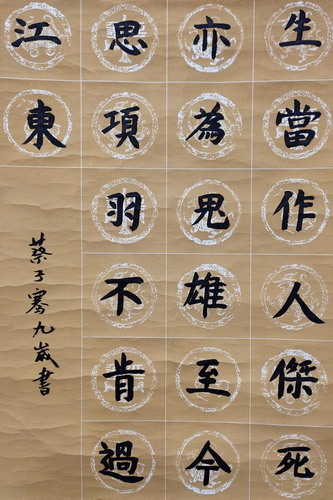 生當作人傑死
亦為鬼雄至今
思項羽不肯過
江東
蔡子騫九歲書